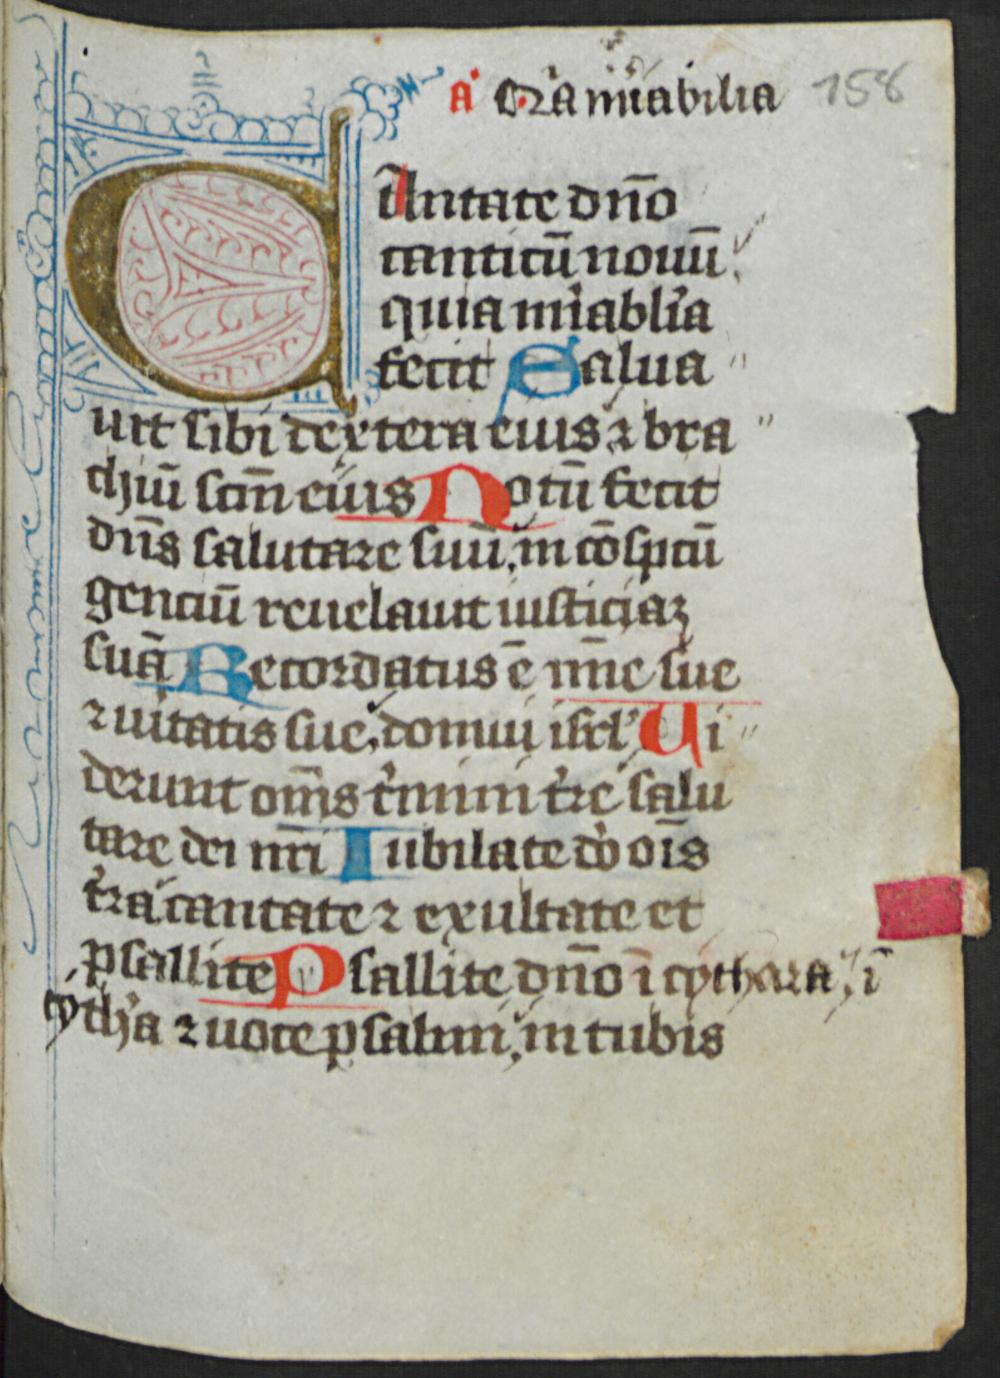 a᷒ Q̃ꝛa mĩabilia 158
CAntate dn̄o
canticū nouū
quia mi̾ablia̾
fecit Salua
uit sibi dextera eius ⁊ bra
chiū scm̄ eius Notū fecit
dn̄s salutare suū, in cōsp̄tū
gentiū reuelauit iusticiaꝫ
suā Recordatus ē mīe sue
⁊ uitatis sue, domui isrl̓ Ui
derunt om̄s t̓mini tr̓e salu
tare dei nr̄i Iubilate do̓ ois̄
tr̓a cantate ⁊ exultate et
psallite Psallite dn̄o ī cythara, ī
cytha̓ ⁊ uoce psalmi, in tubis